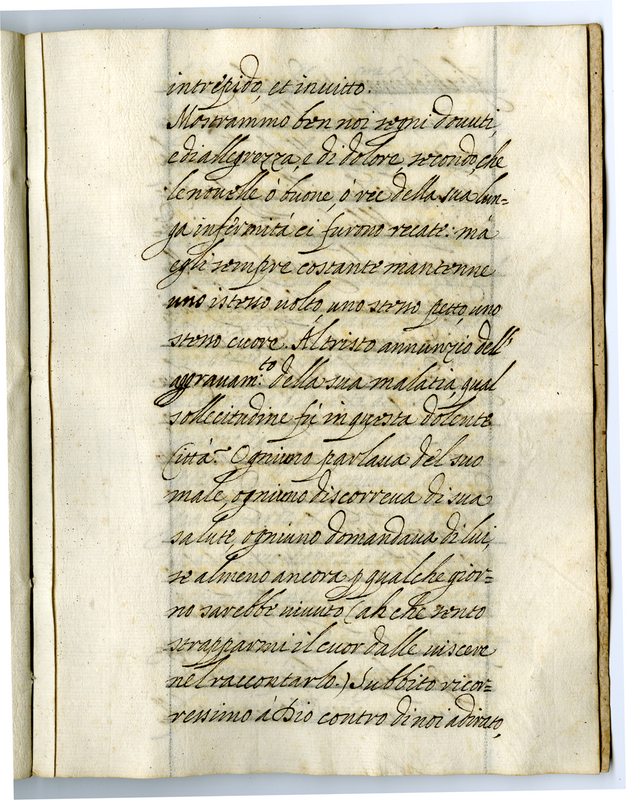 intrepido, et invitto.
Mostrammo ben noi segni dovuti,
e di allegrezza, e di dolore, secondo, che
le novelle ò buone, ò ree della sua lun=
ga infermità ci furono recate: mà
egli sempre costante mantenne
uno istesso volto, uno stesso petto, uno
stesso cuore. Al tristo annunzio dell'
aggravam:to della sua malatia, qual
sollecitudine fù in questa dolente
Città? Ogniuno parlava del suo
male, ogniuno discorreva di sua
salute, ogniuno domandava di lui,
se almeno ancora p qualche gior=
no sarebbe vivuto (ah che sento
strapparmi il cuor dalle viscere
nel raccontarlo.) Subbito ricor=
ressimo à Dio contro di noi adirato,